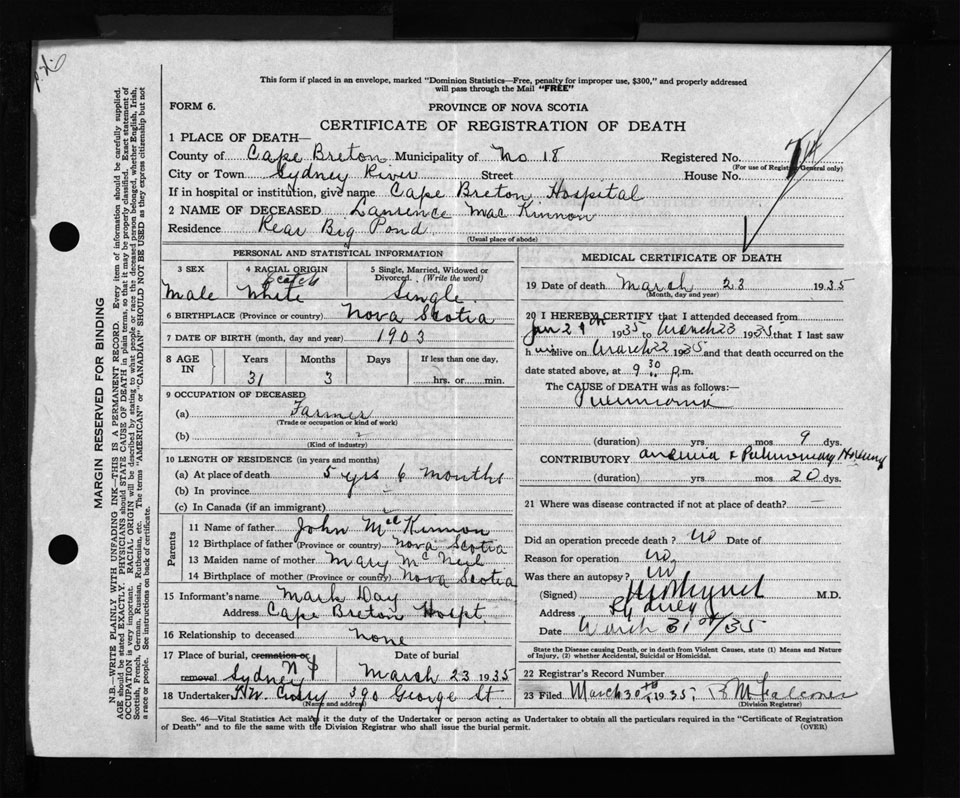 This form if placed in an envelope, marked "Dominion Statistics—Free, penalty for improper use, $300," and properly addressed
will pass through the Mail "FREE"
FORM 6.
PROVINCE OF NOVA SCOTIA
CERTIFICATE OF REGISTRATION OF DEATH
1 PLACE OF DEATH—
County of Cape Breton Municipality of No. 18 Registered No.
(For use of Registrar General only)
City or Town Sydney River Street House No.
If in hospital or institution, give name Cape Breton Hospital
2 NAME OF DECEASED Laurence Mac Kinnon
Residence Rear Big Pond
(Usual place of abode)
PERSONAL AND STATISTICAL INFORMATION
3 SEX 4 RACIAL ORIGIN 5 Single, Married, Widowed or Divorced. (Write the word)
Scotch
Male White Single
6 BIRTHPLACE (Province or country) Nova Scotia
7 DATE OF BIRTH (month, day and year) 1903
8 AGE IN Years Months Days If less than one day,
31 3 hrs. or min.
9 OCCUPATION OF DECEASED
(a) Farmer
(Trade or occupation or kind of work)
(b)
(Kind of industry)
10 LENGTH OF RESIDENCE (in years and months)
(a) At place of death 5 yrs 6 months
(b) In province
(c) In Canada (if an immigrant)
Parents
11 Name of father John McKinnon
12 Birthplace of father (Province or country) Nova Scotia
13 Maiden name of mother Mary McNeil
14 Birthplace of mother (Province or country) Nova Scotia
15 Informant's name Mark Day
Address Cape Breton Hospt.
16 Relationship to deceased none
17 Place of burial, cremation or removal Date of burial
Sydney March 23 1935
18 Undertaker 390 George St.
(Name and address)
MEDICAL CERTIFICATE OF DEATH
19 Date of death March 23 1935
(Month, day and year)
20 I HEREBY CERTIFY that I attended deceased from
1935 to March 23 1935 that I last saw
him alive on March 22 1935 and that death occurred on the
date stated above, at 9 30 p.m.
The CAUSE of DEATH was as follows:—
Pneumonia
(duration) yrs mos 9 dys.
CONTRIBUTORY anemia & Pulmonary
(duration) yrs mos 20 dys.
21 Where was disease contracted if not at place of death?
Did an operation precede death? no Date of
Reason for operation no
Was there an autopsy? no
(Signed) M.D.
Address Sydney
Date March 31st/35
State the Disease causing Death, or in death from Violent Causes, state (1) Means and Nature
of Injury, (2) whether Accidental, Suicidal or Homicidal.
22 Registrar's Record Number
23 Filed March 30th 1935;
(Division Registrar)
Sec. 46—Vital Statistics Act make it the duty of the Undertaker or person acting as Undertaker to obtain all the particulars required in the "Certificate of Registration
of Death" and to file the same with the Division Registrar who shall issue the burial permit. (OVER)
MARGIN RESERVED FOR BINDING
N.B.—WRITE PLAINLY WITH UNFADING INK—THIS IS A PERMANENT RECORD. Every item of information should be carefully supplied.
AGE should be stated EXACTLY. PHYSICIANS should STATE CAUSE OF DEATH in plain terms, so that it may be properly classified. Exact statement of
OCCUPATION is very important. RACIAL ORIGIN will be described by stating to what people or race the deceased person belonged, whether English, Irish,
Scottish, French, German, Russian, Ruthenian, etc. The terms "AMERICAN" or "CANADIAN" SHOULD NOT BE USED as they express citizenship but not
a race or people. See instructions on back of certificate.